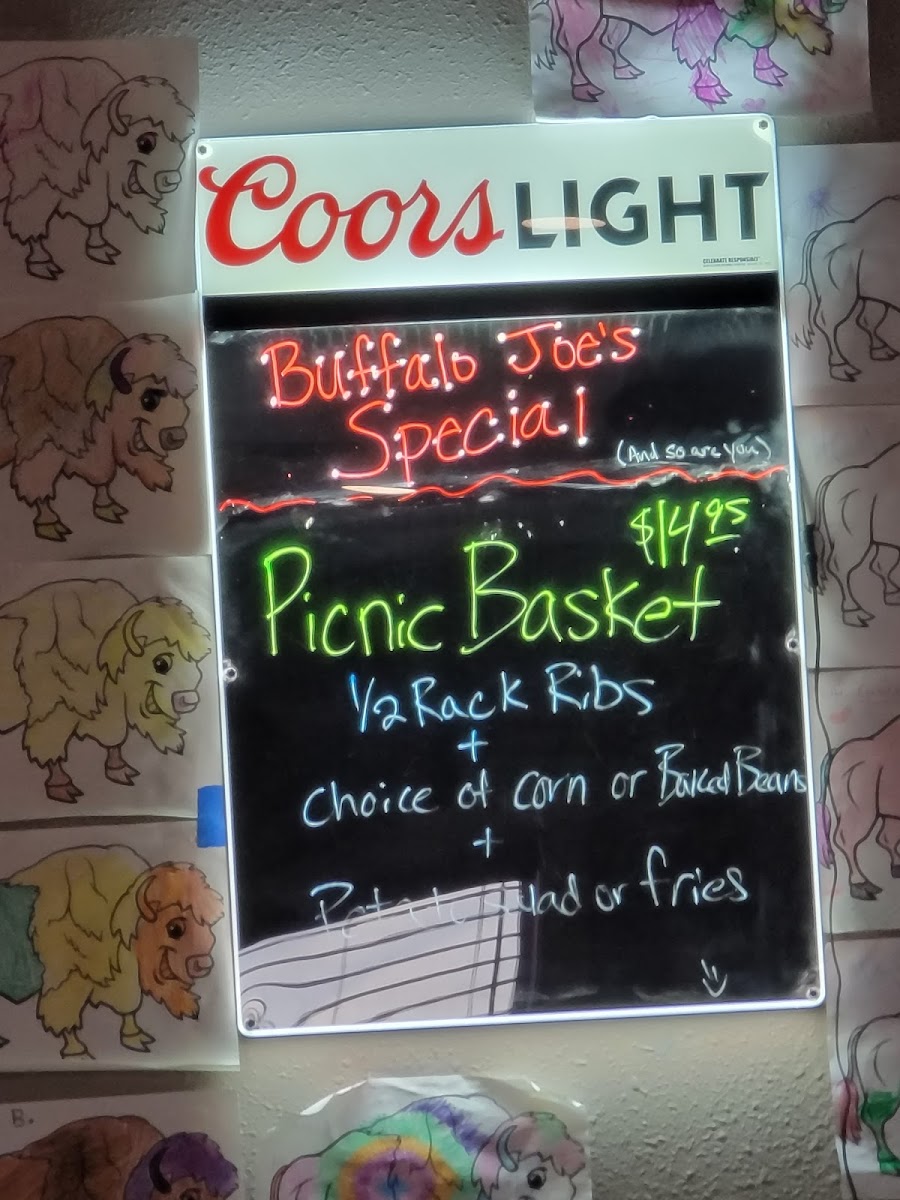 Coors LIGHT
CELEBRATE RESPONSIBLY
Buffalo Joe's
Special
(And so are you)
$14.95
Picnic Basket
1/2 Rack Ribs
+
choice of corn or Baked Beans
+
Potato salad or fries
B.